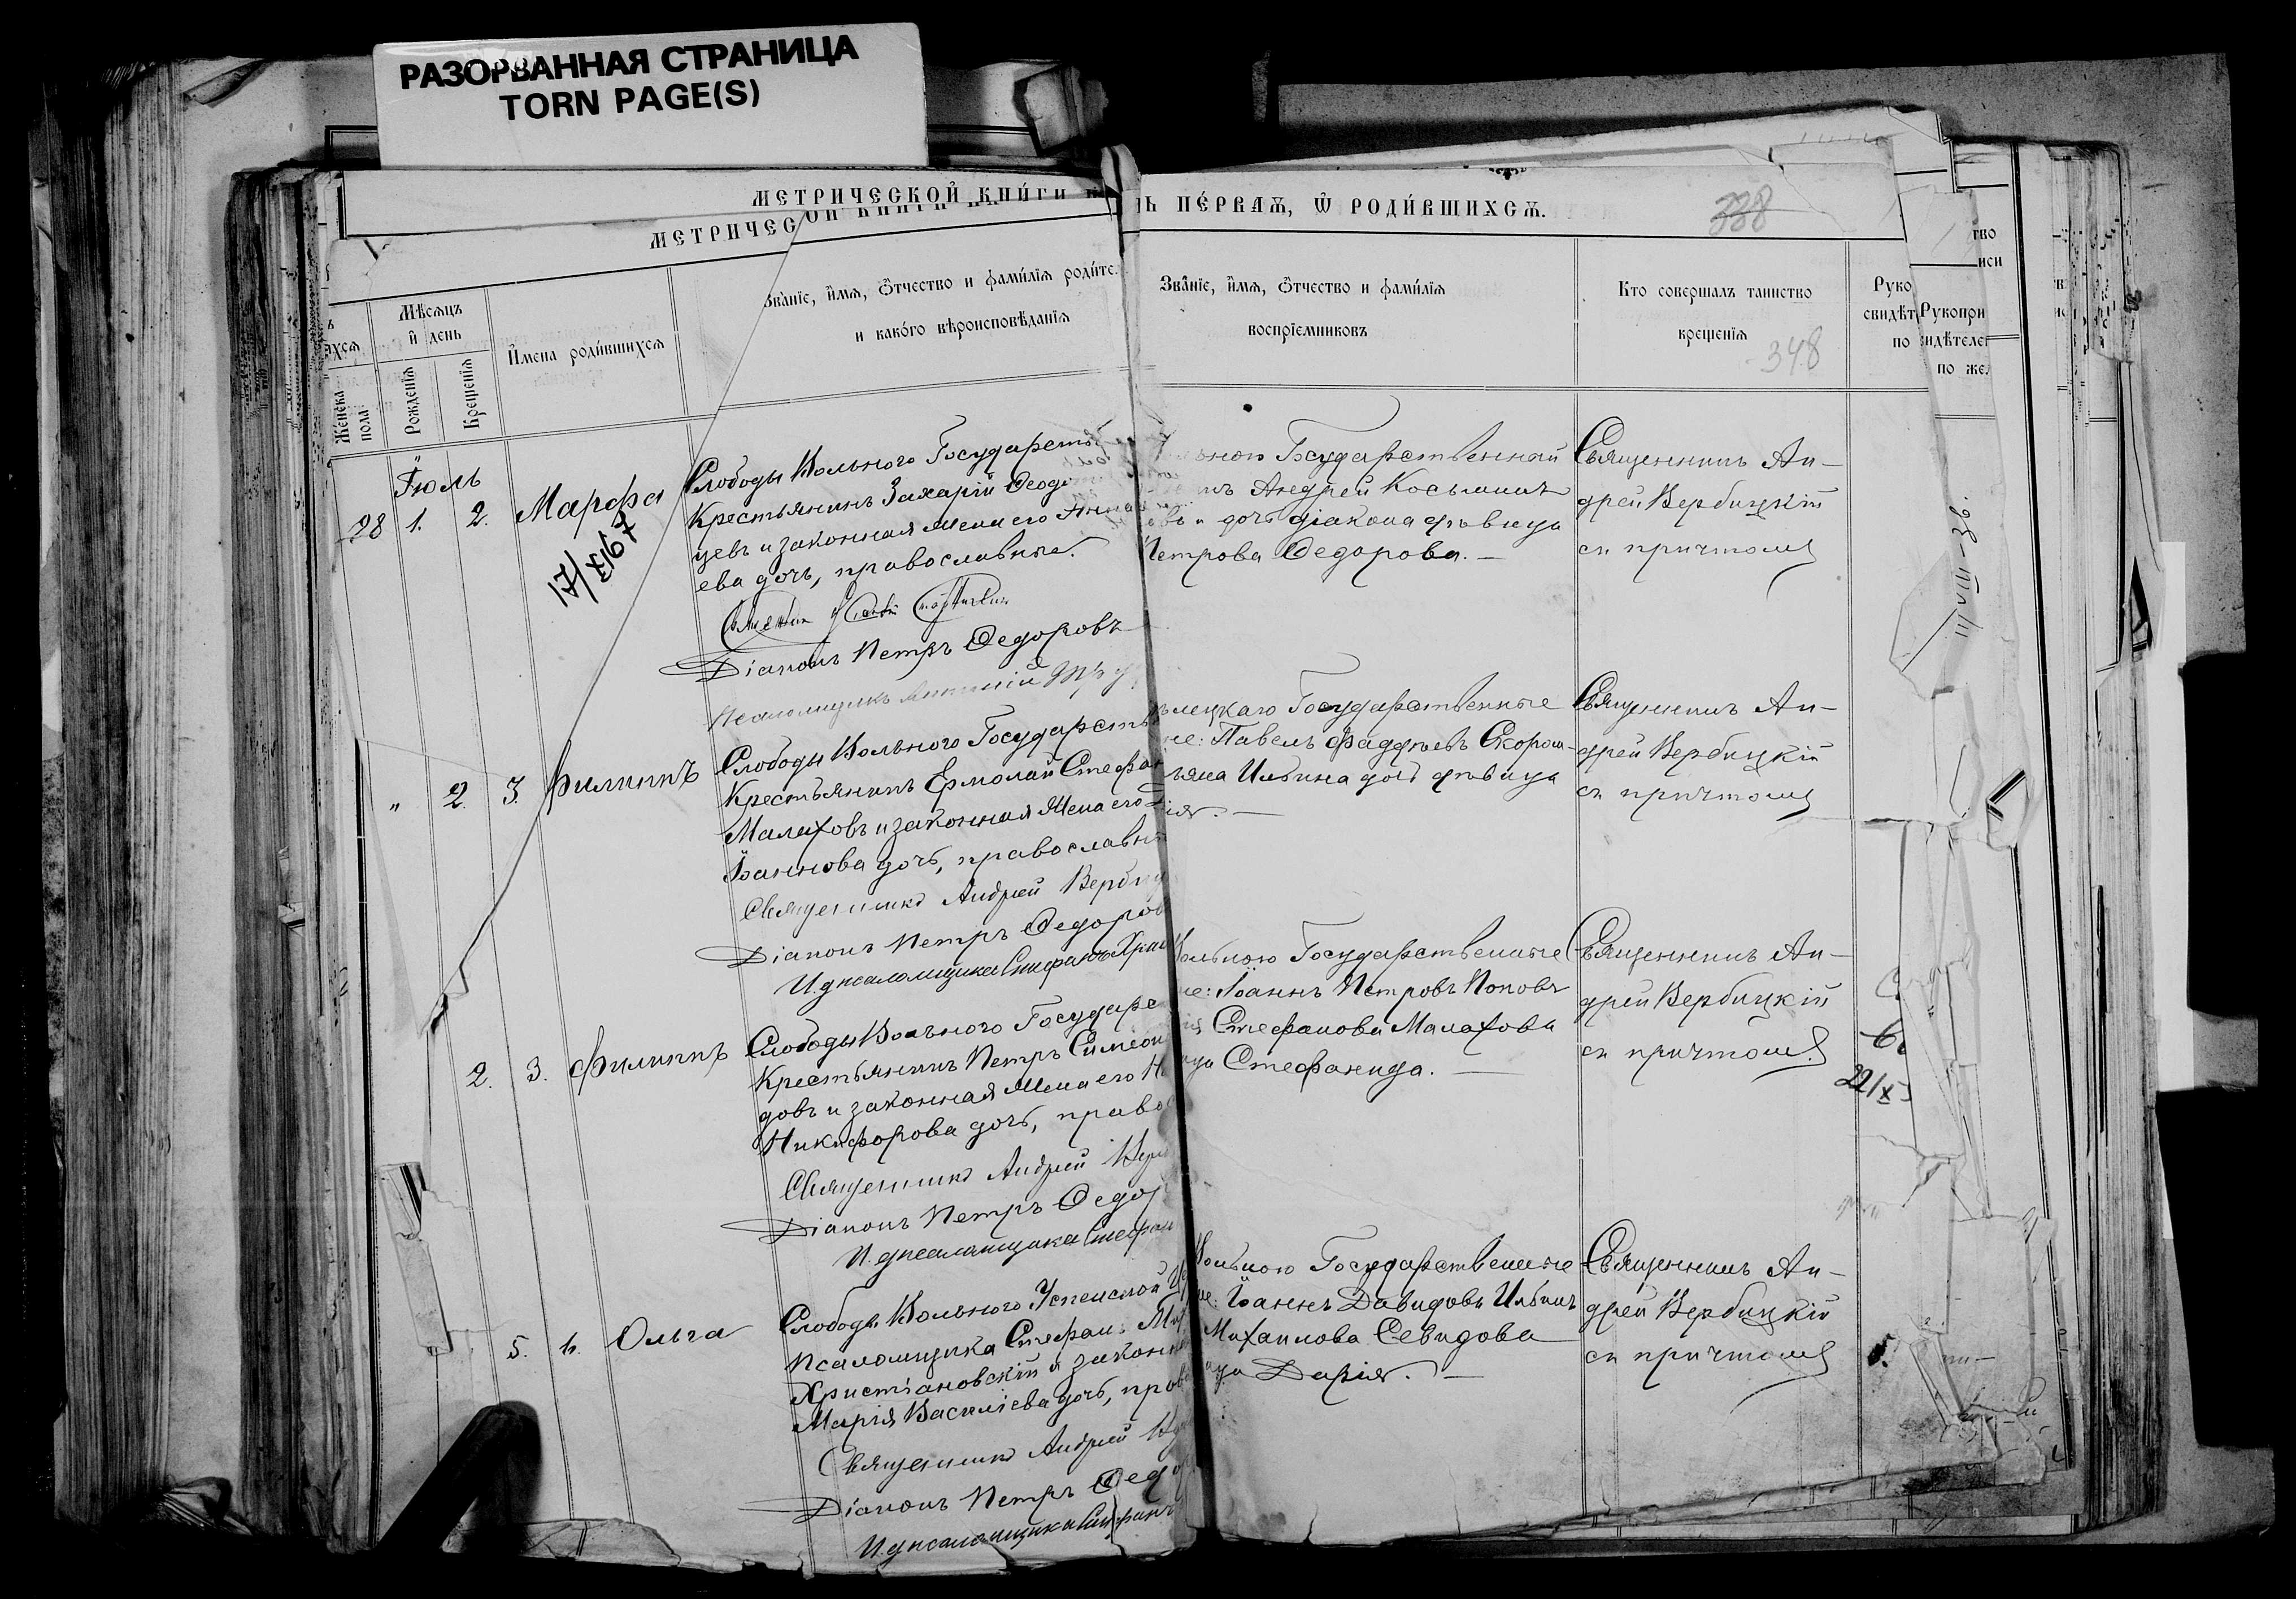 РАЗОРВАННАЯ СТРАНИЦА
TORN PAGE(S)
МЕТРИЧЕСКОЙ КНИ́ГИ
МЕТРИЧЕС
ПЕ́РВАѦ, Ѿ РОДИ́ВШИХСѦ.
338
Мѣ́сѧцъ
и҆ день
Же́нска
пола
Рожденїѧ
Крещенїѧ
И҆мена роди́вшихсѧ
Зва́нїе, и҆́мѧ, ѻ҆́тчество и фами́лїѧ роди́те
и како́го вѣроисповѣ́данїѧ
Зва́нїе, и҆́мѧ, ѻ҆́тчество и фами́лїѧ
воспрїемниковъ
Кто совершалъ таинство
крещенїѧ
348
Руко
свидѣт
по
Рукопри
идѣтеле
по же
Іюль
28 1. 2. Марфа
17/XI 67
Слободы Вольнаго Государств
Крестьянинъ Захарій Ѳеодо
цевъ и законная Жена его Анна
ева дочь, православные.
Діаконъ Петръ Ѳедоровъ
Псаломщикъ
Государственный
Андрей Косьминъ
дочь діакона дѣвица
Петрова Ѳедорова.
Священникъ Ан-
дрей Вербицкій
съ причтомъ
11/VIII-38.
" 2. 3. Филиппъ
Слободы Вольнаго Государств
Крестьянинъ Ермолай Стефан
Малаховъ и законная Жена его
Іоаннова дочь, православн
Священникъ Андрей Верби
Діаконъ Петръ Ѳедоров
И.д. псаломщика Стефанъ Хри
лецкаго Государственные
не: Павелъ Фаддѣевъ Скором-
Ильина дочь дѣвица
Священникъ Ан-
дрей Вербицкій
съ причтомъ
2. 3. Филиппъ
Слободы Вольнаго Государс
Крестьянинъ Петръ Симеон
довъ и законная Жена его
Никифорова дочь, право
Священникъ Андрей Вер
Діаконъ Петръ Ѳедор
И.д. псаломщика Стефан
Вольнаго Государственные
не: Іоаннъ Петровъ Поповъ
Стефанова Малахова
ица Стефанида.
Священникъ Ан-
дрей Вербицкій
съ причтомъ
22/X
5. 6. Ольга
Слободы Вольнаго Успенской
Псаломщика Стефанъ
Христіановскій и законн
Марія Василіева дочь, прав
Священникъ Андрей
Діаконъ Петръ Ѳедо
И.д. псаломщика Стефанъ
Вольнаго Государственные
не: Іоаннъ Давидовъ Ильинъ
Михаилова Севидова
ица Дарія.
Священникъ Ан-
дрей Вербицкій
съ причтомъ